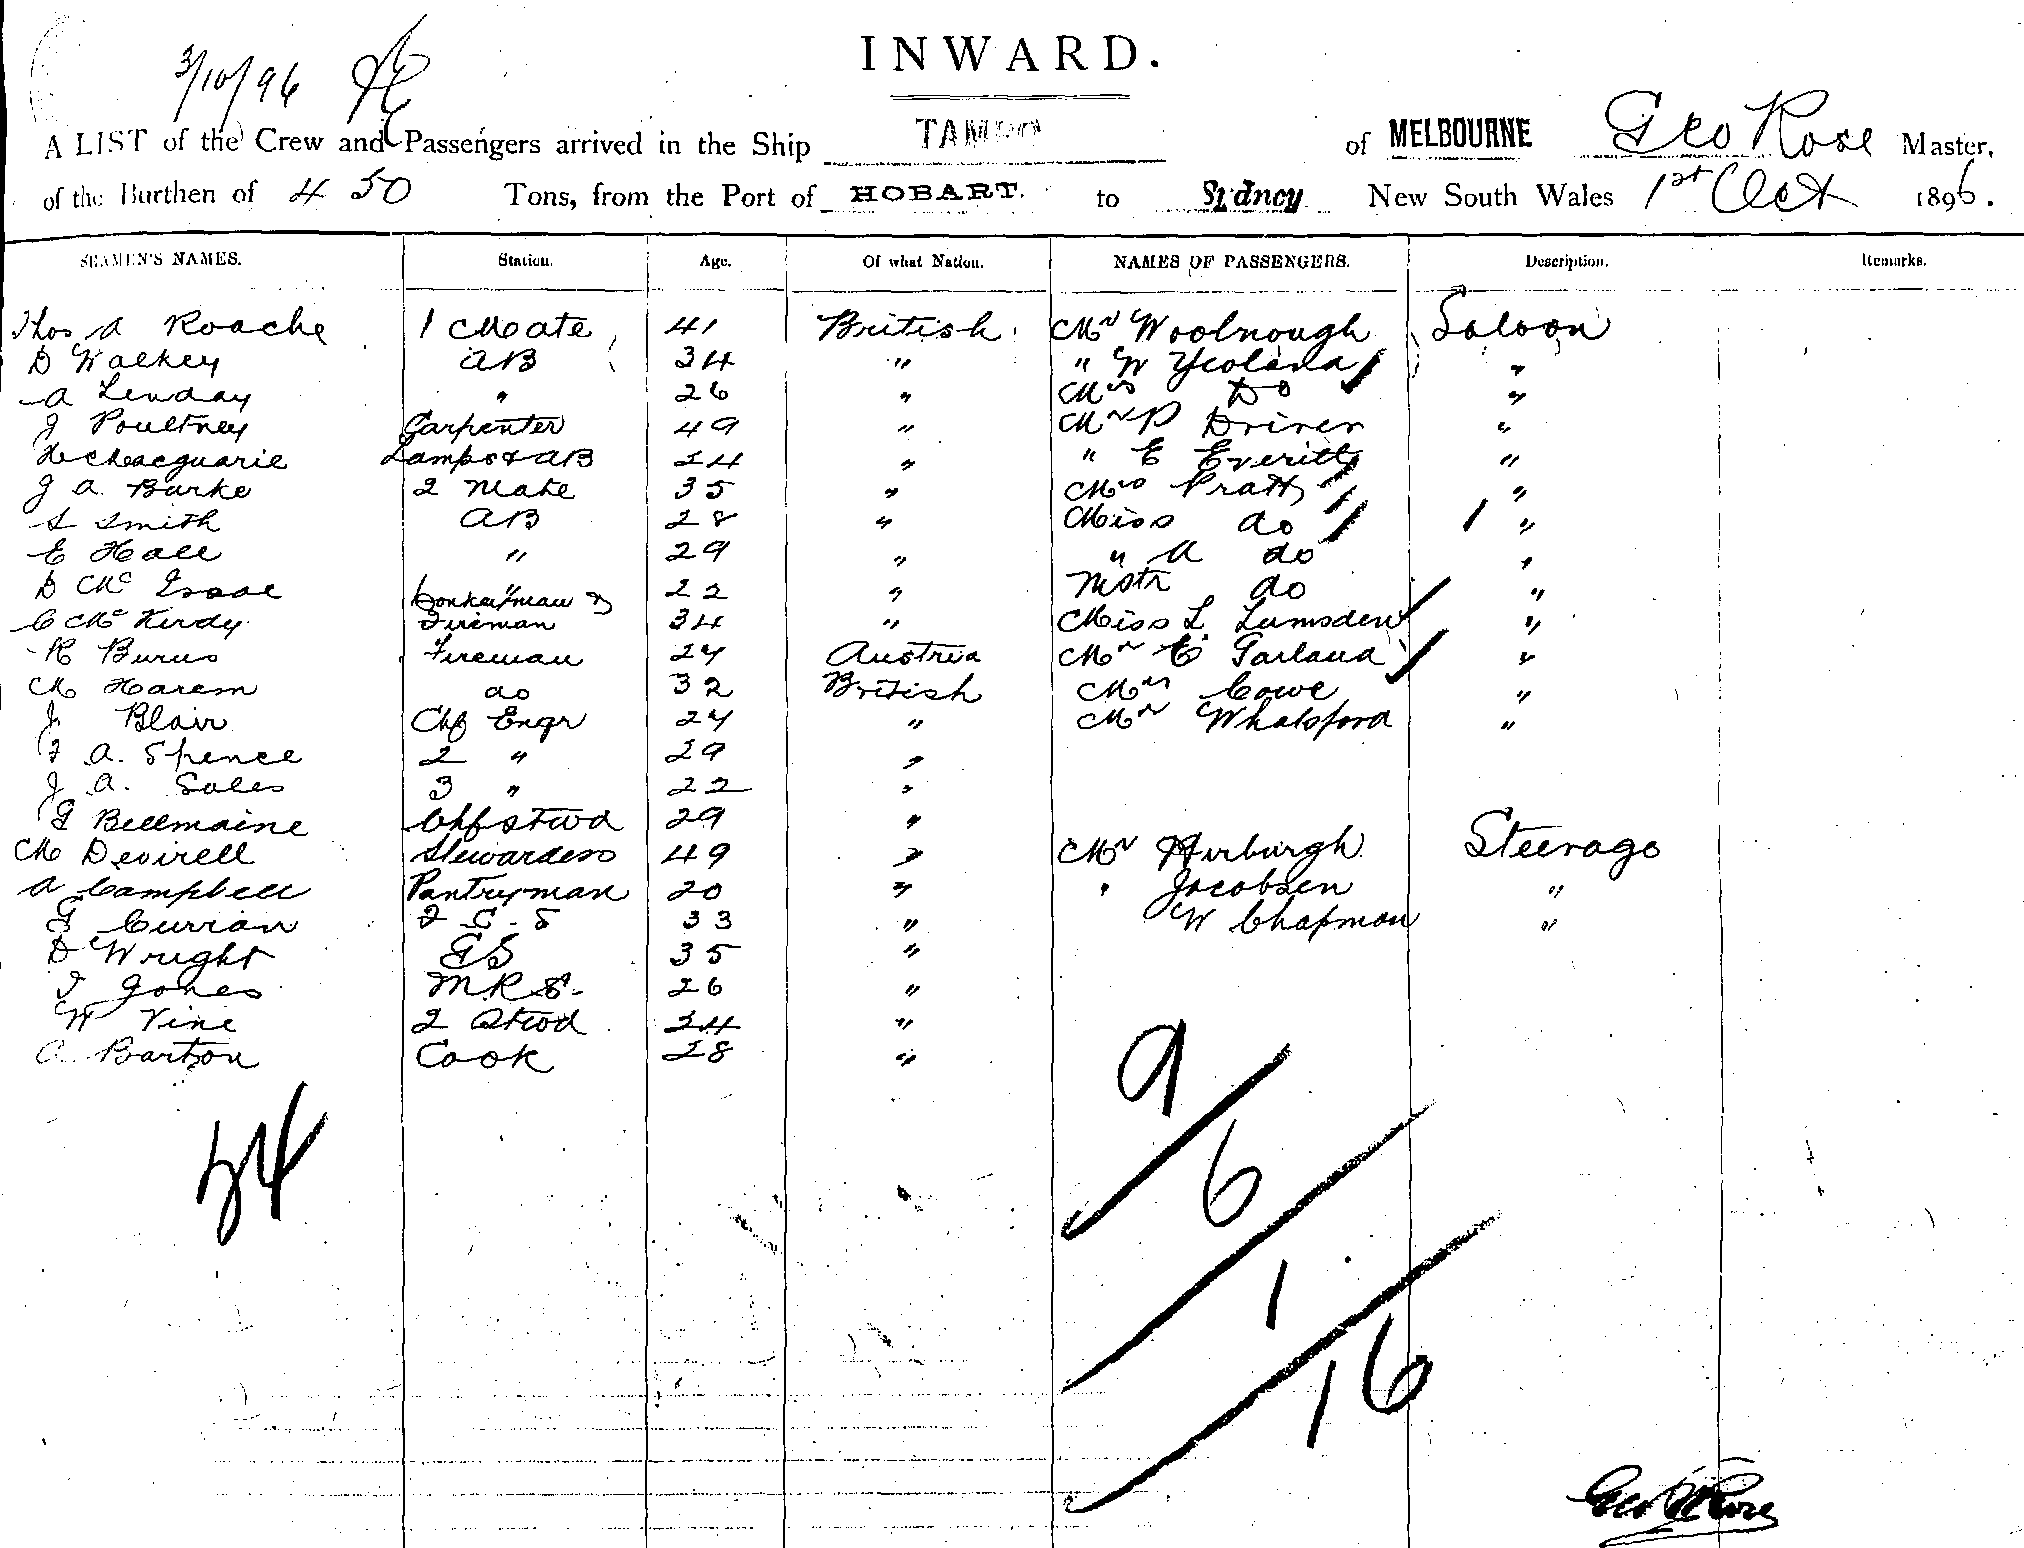 INWARD.
3/10/96
A LIST of the Crew and Passengers arrived in the Ship TAMBO of MELBOURNE Geo Rose Master,
of the Burthen of 450 Tons, from the Port of HOBART. to Sydney New South Wales 1st Oct 1896.
SEAMEN'S NAMES. Station. Age. Of what Nation. NAMES OF PASSENGERS. Description. Remarks.
Thos A Roache 1 Mate 41 British Mr Woolnough Saloon
D Walkey AB 34 " " W Yeoland "
A Lenday " 26 " Mrs Do "
J Poultney Carpenter 49 " Mr P Driver "
H Macquarie Lamps & AB 24 " " E Everitt "
J A Burke 2 Mate 35 " Mrs Pratt "
S Smith AB 28 " Miss do 1 "
E Hall " 29 " " A do "
D Mc Isaac " 22 " Mstr do "
C Mc Kirdy Donkeyman & Fireman 34 " Miss L Lumsden "
R Burus Fireman 24 Austria Mr E Garland "
M Harem do 32 British Mrs Cowe "
J Blair Chf Engr 24 " Mr Whalsford "
F A. Spence 2 " 29 "
J A. Sales 3 " 22 "
G Bellmaine Chf Stwd 29 "
M Devirell Stewardess 49 " Mr Hirburgh Steerage
A Campbell Pantryman 20 " " Jacobsen "
G Curran F C. S 33 " W Chapman "
D Wright GS 35 "
T Jones M.R.S. 26 "
W Vine 2 Stwd 24 "
A Barton Cook 28 "
24
9
6
1
16
Geo Rose